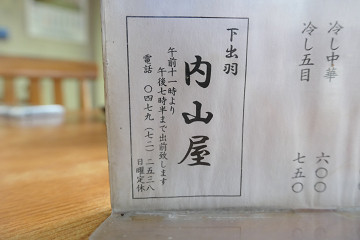 冷し中華 六〇〇
冷し五目 七五〇
下出羽
内山屋
午前十一時より
午後七時半まで出前致します
電話 〇四七九(七二)二五三八
日曜定休